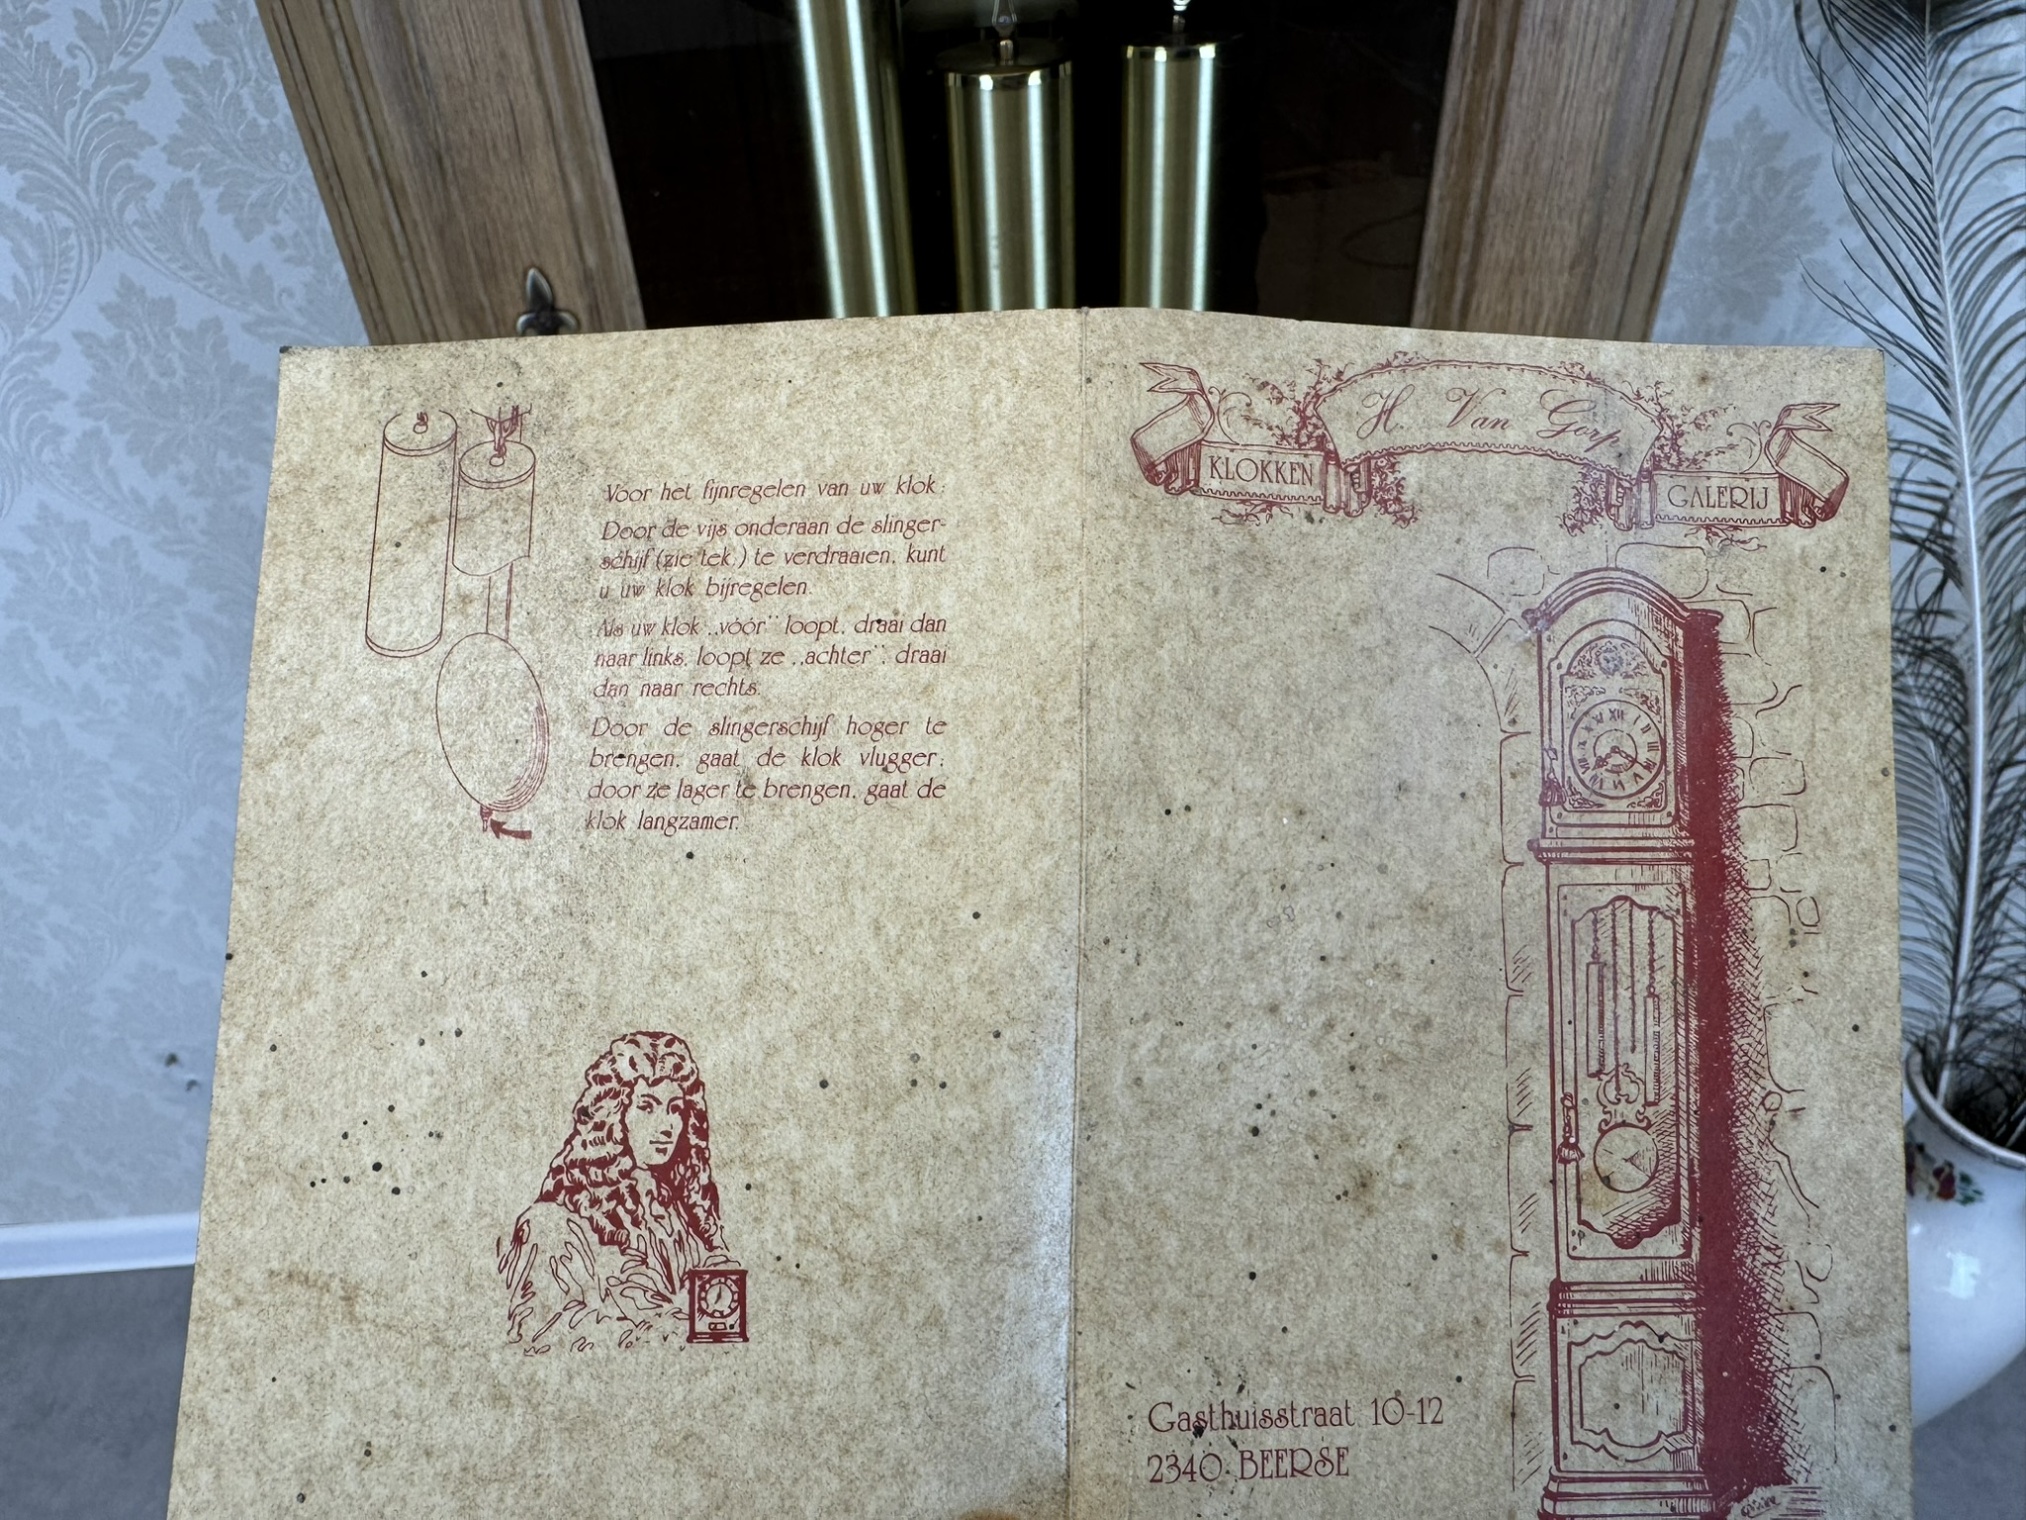 Voor het fijnregelen van uw klok:
Door de vijs onderaan de slinger-
schijf (zie tek.) te verdraaien, kunt
u uw klok bijregelen.
Als uw klok „vóór” loopt, draai dan
naar links, loopt ze „achter”, draai
dan naar rechts.
Door de slingerschijf hoger te
brengen, gaat de klok vlugger;
door ze lager te brengen, gaat de
klok langzamer.
H. Van Gorp
KLOKKEN GALERIJ
Gasthuisstraat 10-12
2340 BEERSE